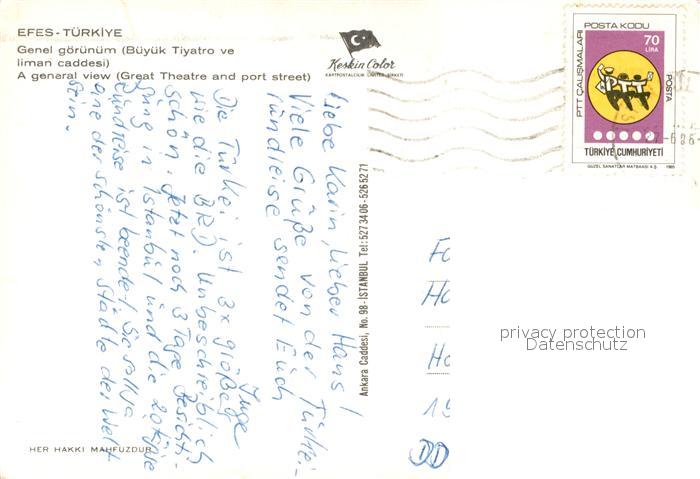 EFES - TÜRKİYE
Genel görünüm (Büyük Tiyatro ve
liman caddesi)
A general view (Great Theatre and port street)
Keskin Color
KARTPOSTALCILIK LİMİTED ŞİRKETİ
POSTA KODU
PTT ÇALIŞMALARI
70
LİRA
PTT
POSTA
TÜRKİYE CUMHURİYETİ
GÜZEL SANATLAR MATBAASI A.Ş. 1985
Liebe Karin, lieber Hans!
Viele Grüße von der Türkei-
rundreise sendet Euch
Inge
Die Türkei ist 3x größer
wie die BRD. Unbeschreiblich
schön. Jetzt noch 3 Tage Besichti-
gung in Istanbul und die
Rundreise ist beendet. Sie soll ja
eine der schönsten Städte der Welt
sein.
Ankara Caddesi, No. 98 - İSTANBUL Tel: 5273406-5265271
Fa
Ha
Ho
19
DD
privacy protection
Datenschutz
HER HAKKI MAHFUZDUR